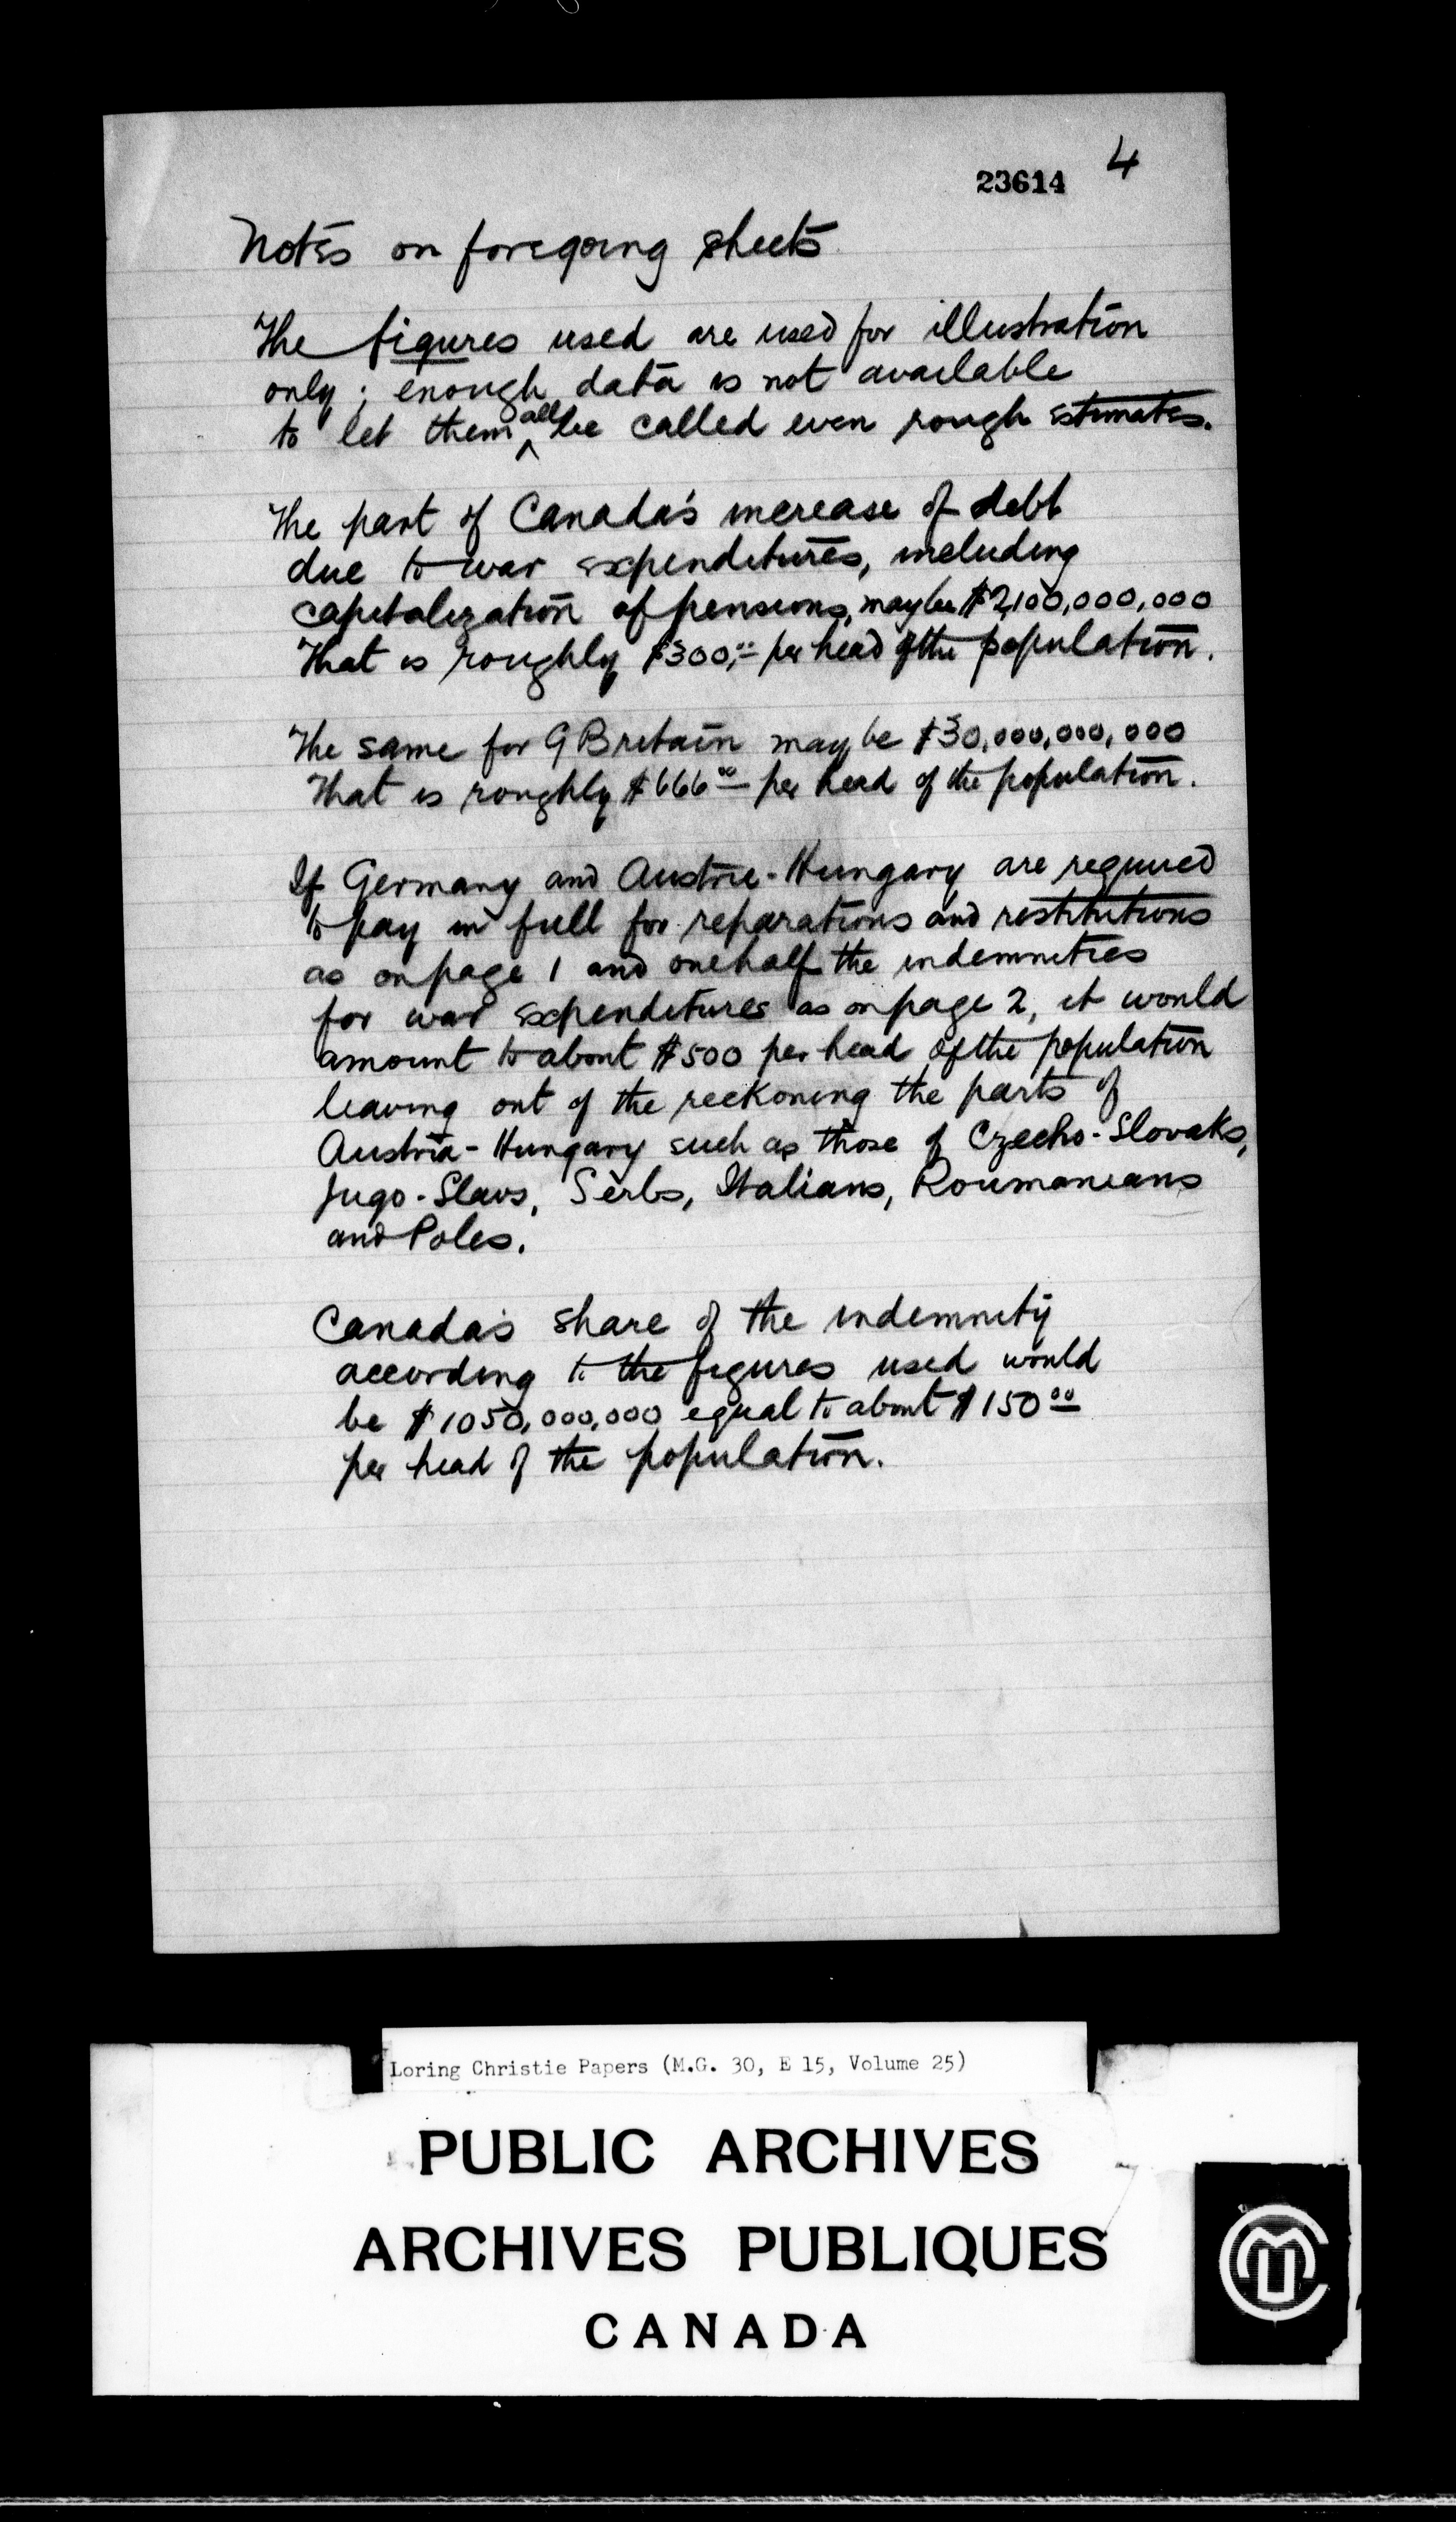 4
23614
Notes on foregoing sheets
The figures used are used for illustration
only; enough data is not available
to let them all be called even rough estimates.
The part of Canada's increase of debt
due to war expenditures, including
capitalization of pensions, may be $2,100,000,000
That is roughly $300,00 per head of the population.
The same for G Britain may be $30,000,000,000
That is roughly $66600 per head of the population.
If Germany and Austria-Hungary are required
to pay in full for reparations and restitutions
as on page 1 and one half the indemnities
for war expenditures as on page 2, it would
amount to about $500 per head of the population
leaving out of the reckoning the parts of
Austria-Hungary such as those of Czecho-Slovaks,
Jugo-Slavs, Serbs, Italians, Roumanians
and Poles.
Canada's share of the indemnity
according to the figures used would
be $1050,000,000 equal to about $15000
per head of the population.
Loring Christie Papers (M.G. 30, E 15, Volume 25)
PUBLIC ARCHIVES
ARCHIVES PUBLIQUES
CANADA